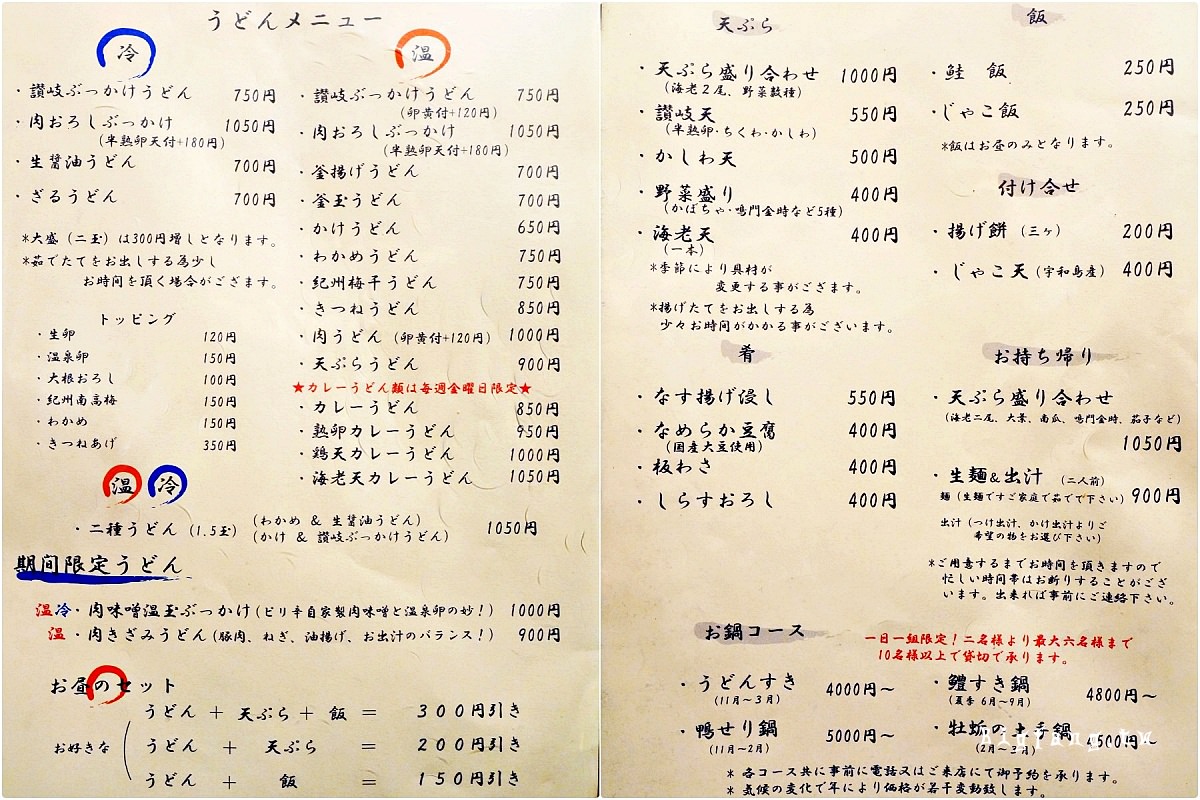 うどんメニュー
冷
・讃岐ぶっかけうどん 750円
・肉おろしぶっかけ 1050円
(半熟卵天付+180円)
・生醤油うどん 700円
・ざるうどん 700円
*大盛(二玉)は300円増しとなります。
*茹でたてをお出しする為少し
お時間を頂く場合がございます。
トッピング
・生卵 120円
・温泉卵 150円
・大根おろし 100円
・紀州南高梅 150円
・わかめ 150円
・きつねあげ 350円
温
・讃岐ぶっかけうどん 750円
(卵黄付+120円)
・肉おろしぶっかけ 1050円
(半熟卵天付+180円)
・釜揚げうどん 700円
・釜玉うどん 700円
・かけうどん 650円
・わかめうどん 750円
・紀州梅干うどん 750円
・きつねうどん 850円
・肉うどん (卵黄付+120円) 1000円
・天ぷらうどん 900円
★カレーうどん類は毎週金曜日限定★
・カレーうどん 850円
・熟卵カレーうどん 950円
・鶏天カレーうどん 1000円
・海老天カレーうどん 1050円
温 冷
・二種うどん (1.5玉) (わかめ & 生醤油うどん) 1050円
(かけ & 讃岐ぶっかけうどん)
期間限定うどん
温冷・肉味噌温玉ぶっかけ(ピリ辛自家製肉味噌と温泉卵の妙!) 1000円
温・肉きざみうどん(豚肉、ねぎ、油揚げ、お出汁のバランス!) 900円
お昼のセット
お好きな
うどん + 天ぷら + 飯 = 300円引き
うどん + 天ぷら = 200円引き
うどん + 飯 = 150円引き
天ぷら
・天ぷら盛り合わせ 1000円
(海老2尾、野菜数種)
・讃岐天 550円
(半熟卵・ちくわ・かしわ)
・かしわ天 500円
・野菜盛り 400円
(かぼちゃ・鳴門金時など5種)
・海老天 400円
(一本)
*季節により具材が
変更する事がござます。
*揚げたてをお出しする為
少々お時間がかかる事がございます。
肴
・なす揚げ浸し 550円
・なめらか豆腐 400円
(国産大豆使用)
・板わさ 400円
・しらすおろし 400円
飯
・鮭 飯 250円
・じゃこ飯 250円
*飯はお昼のみとなります。
付け合せ
・揚げ餅 (三ヶ) 200円
・じゃこ天 (宇和島産) 400円
お持ち帰り
・天ぷら盛り合わせ
(海老二尾、大葉、南瓜、鳴門金時、茄子など)
1050円
・生麺&出汁 (二人前)
麺(生麺ですご家庭で茹でて下さい) 900円
出汁(つけ出汁、かけ出汁よりご
希望の物をお選び下さい)
*ご用意するまでお時間を頂きますので
忙しい時間帯はお断りすることがござ
います。出来れば事前にご連絡下さい。
お鍋コース
一日一組限定!二名様より最大六名様まで
10名様以上で貸切で承ります。
・うどんすき 4000円~
(11月~3月)
・鴨せり鍋 5000円~
(11月~2月)
・鱧すき鍋 4800円~
(夏季 6月~9月)
・牡蛎の土手鍋 4500円~
(2月~3月)
* 各コース共に事前に電話又はご来店にて御予約を承ります。
* 気候の変化で年により価格が若干変動致します。